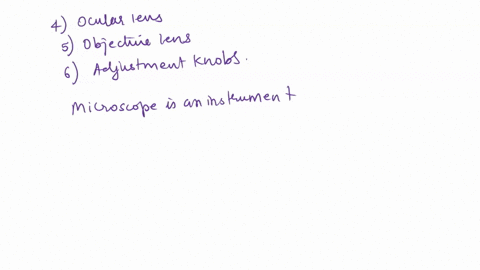 4) Ocular lens
5) Objective lens
6) Adjustment knobs.
Microscope is an instrument